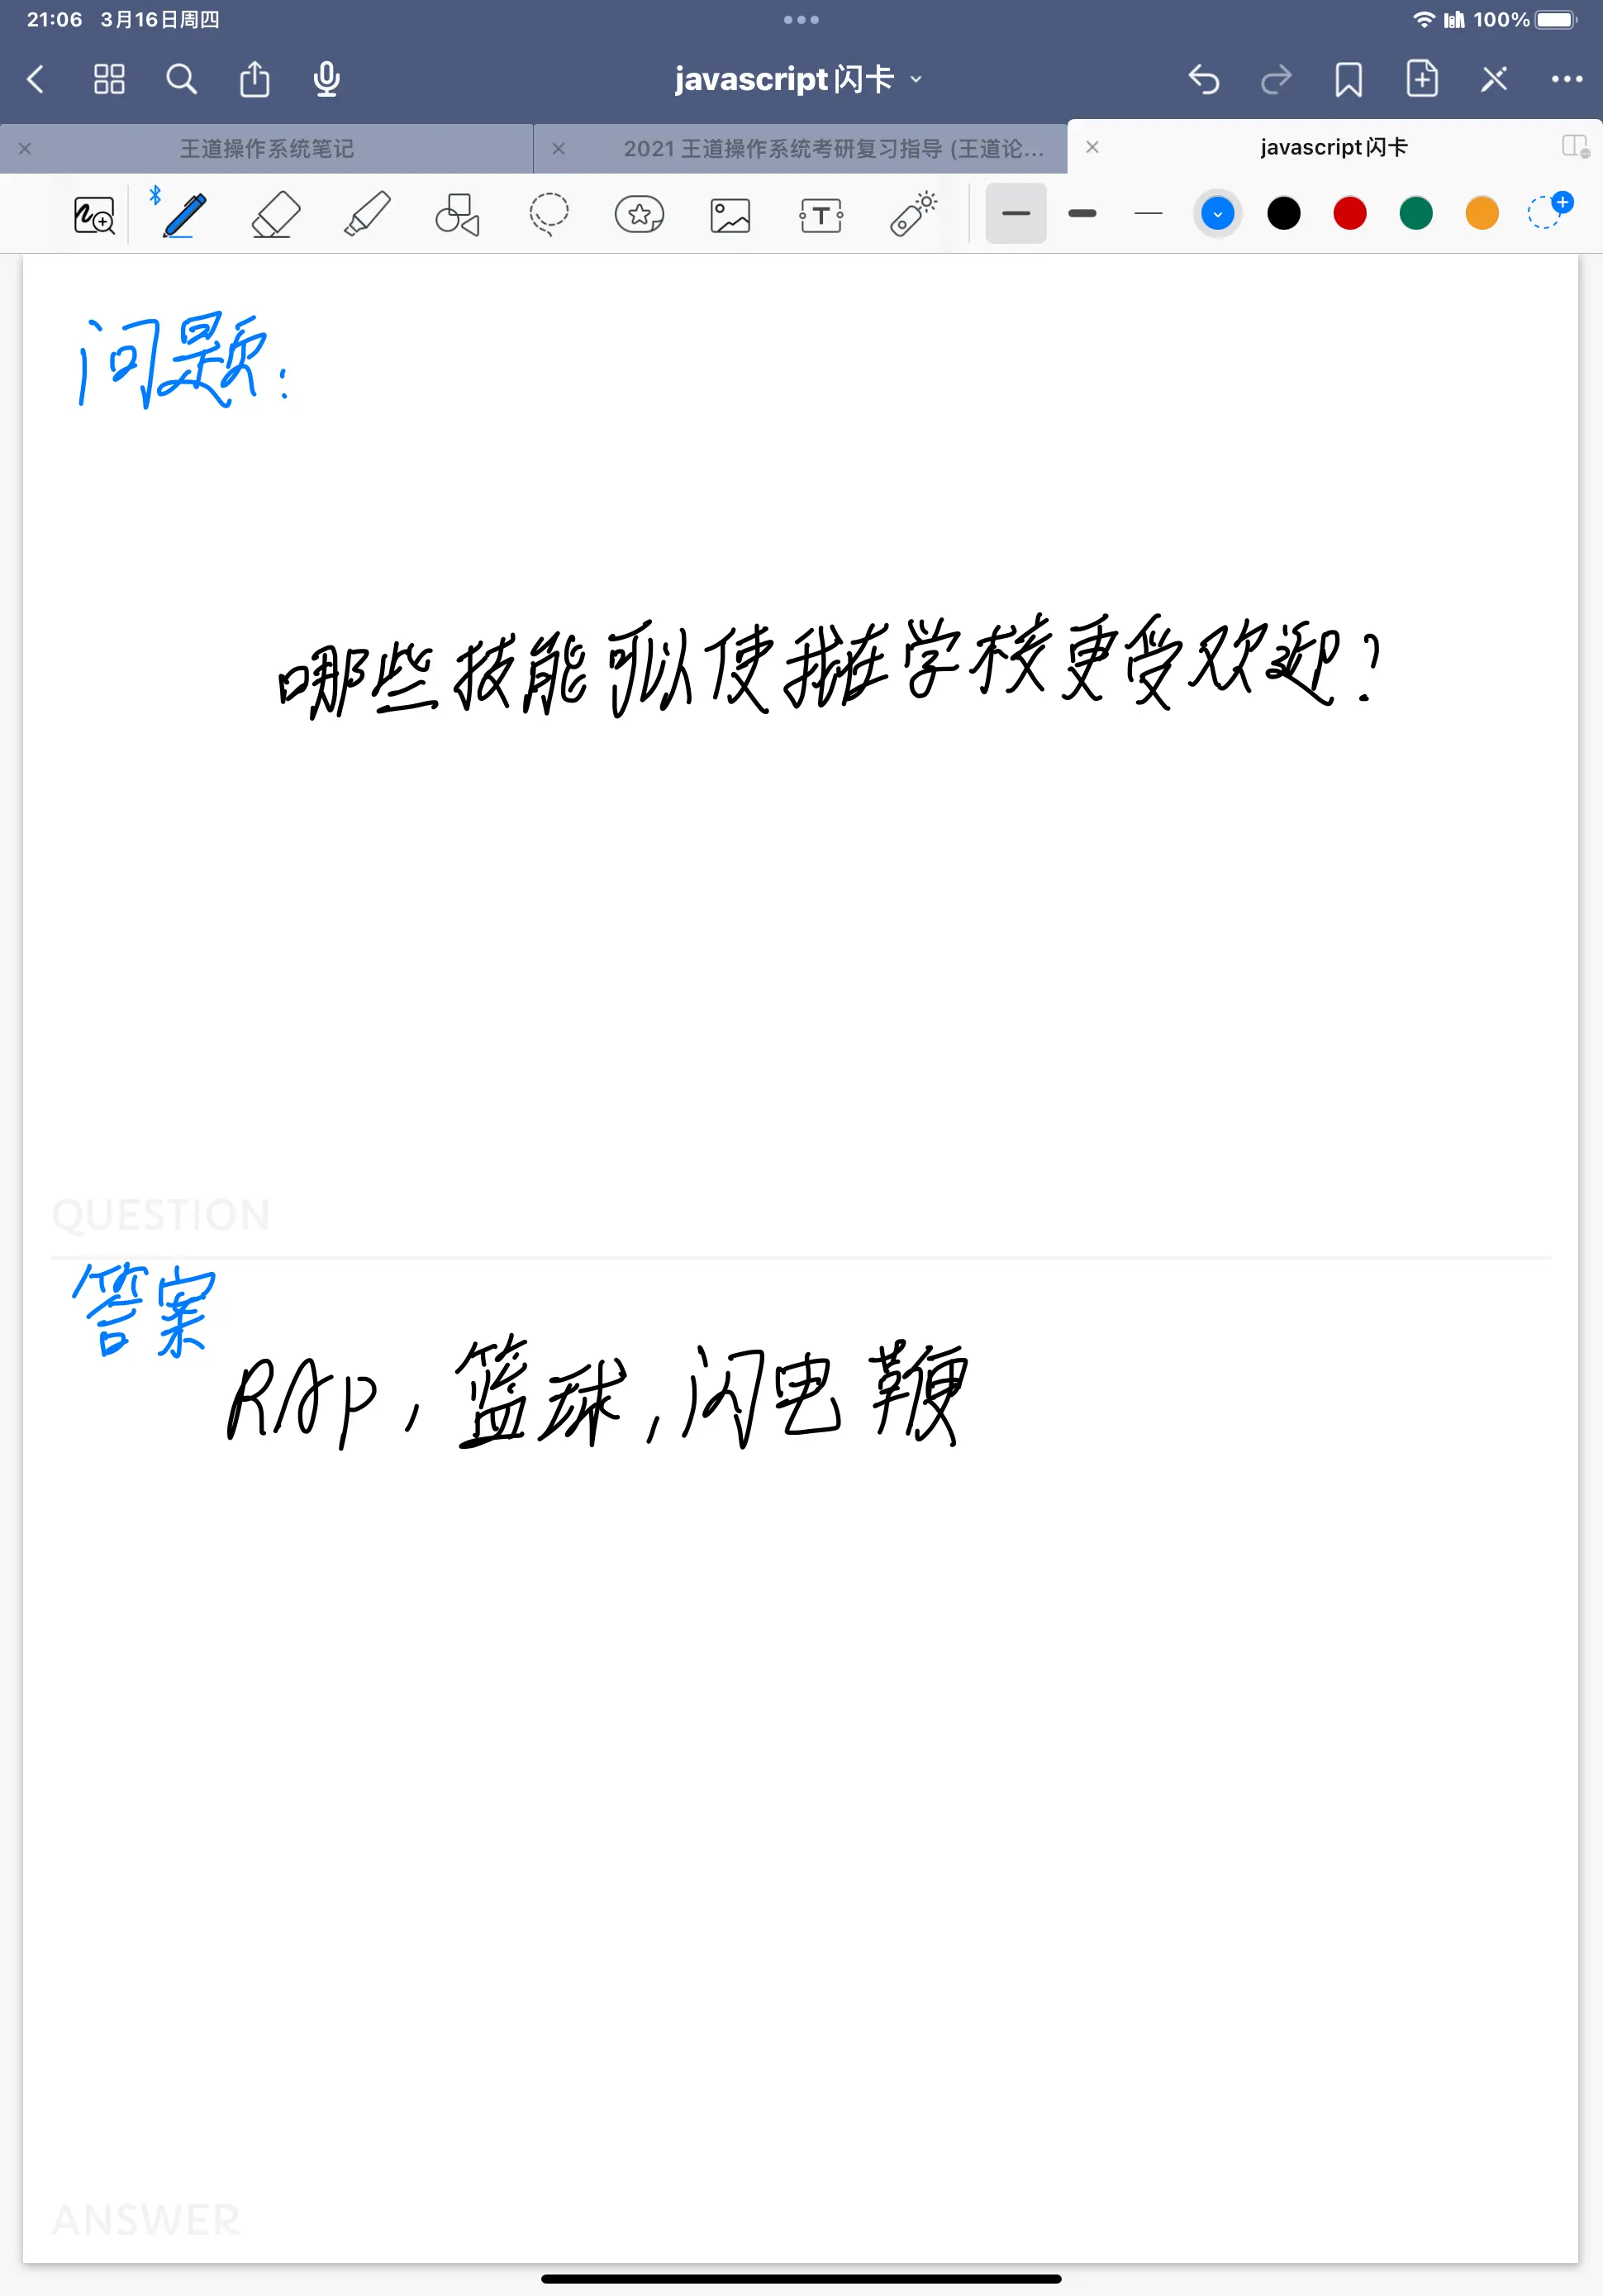 21:06 3月16日周四
100%
javascript闪卡
王道操作系统笔记
2021 王道操作系统考研复习指导 (王道论...
javascript闪卡
问题:
哪些技能可以使我在学校更受欢迎?
QUESTION
答案
RAp, 篮球, 闪电鞭
ANSWER